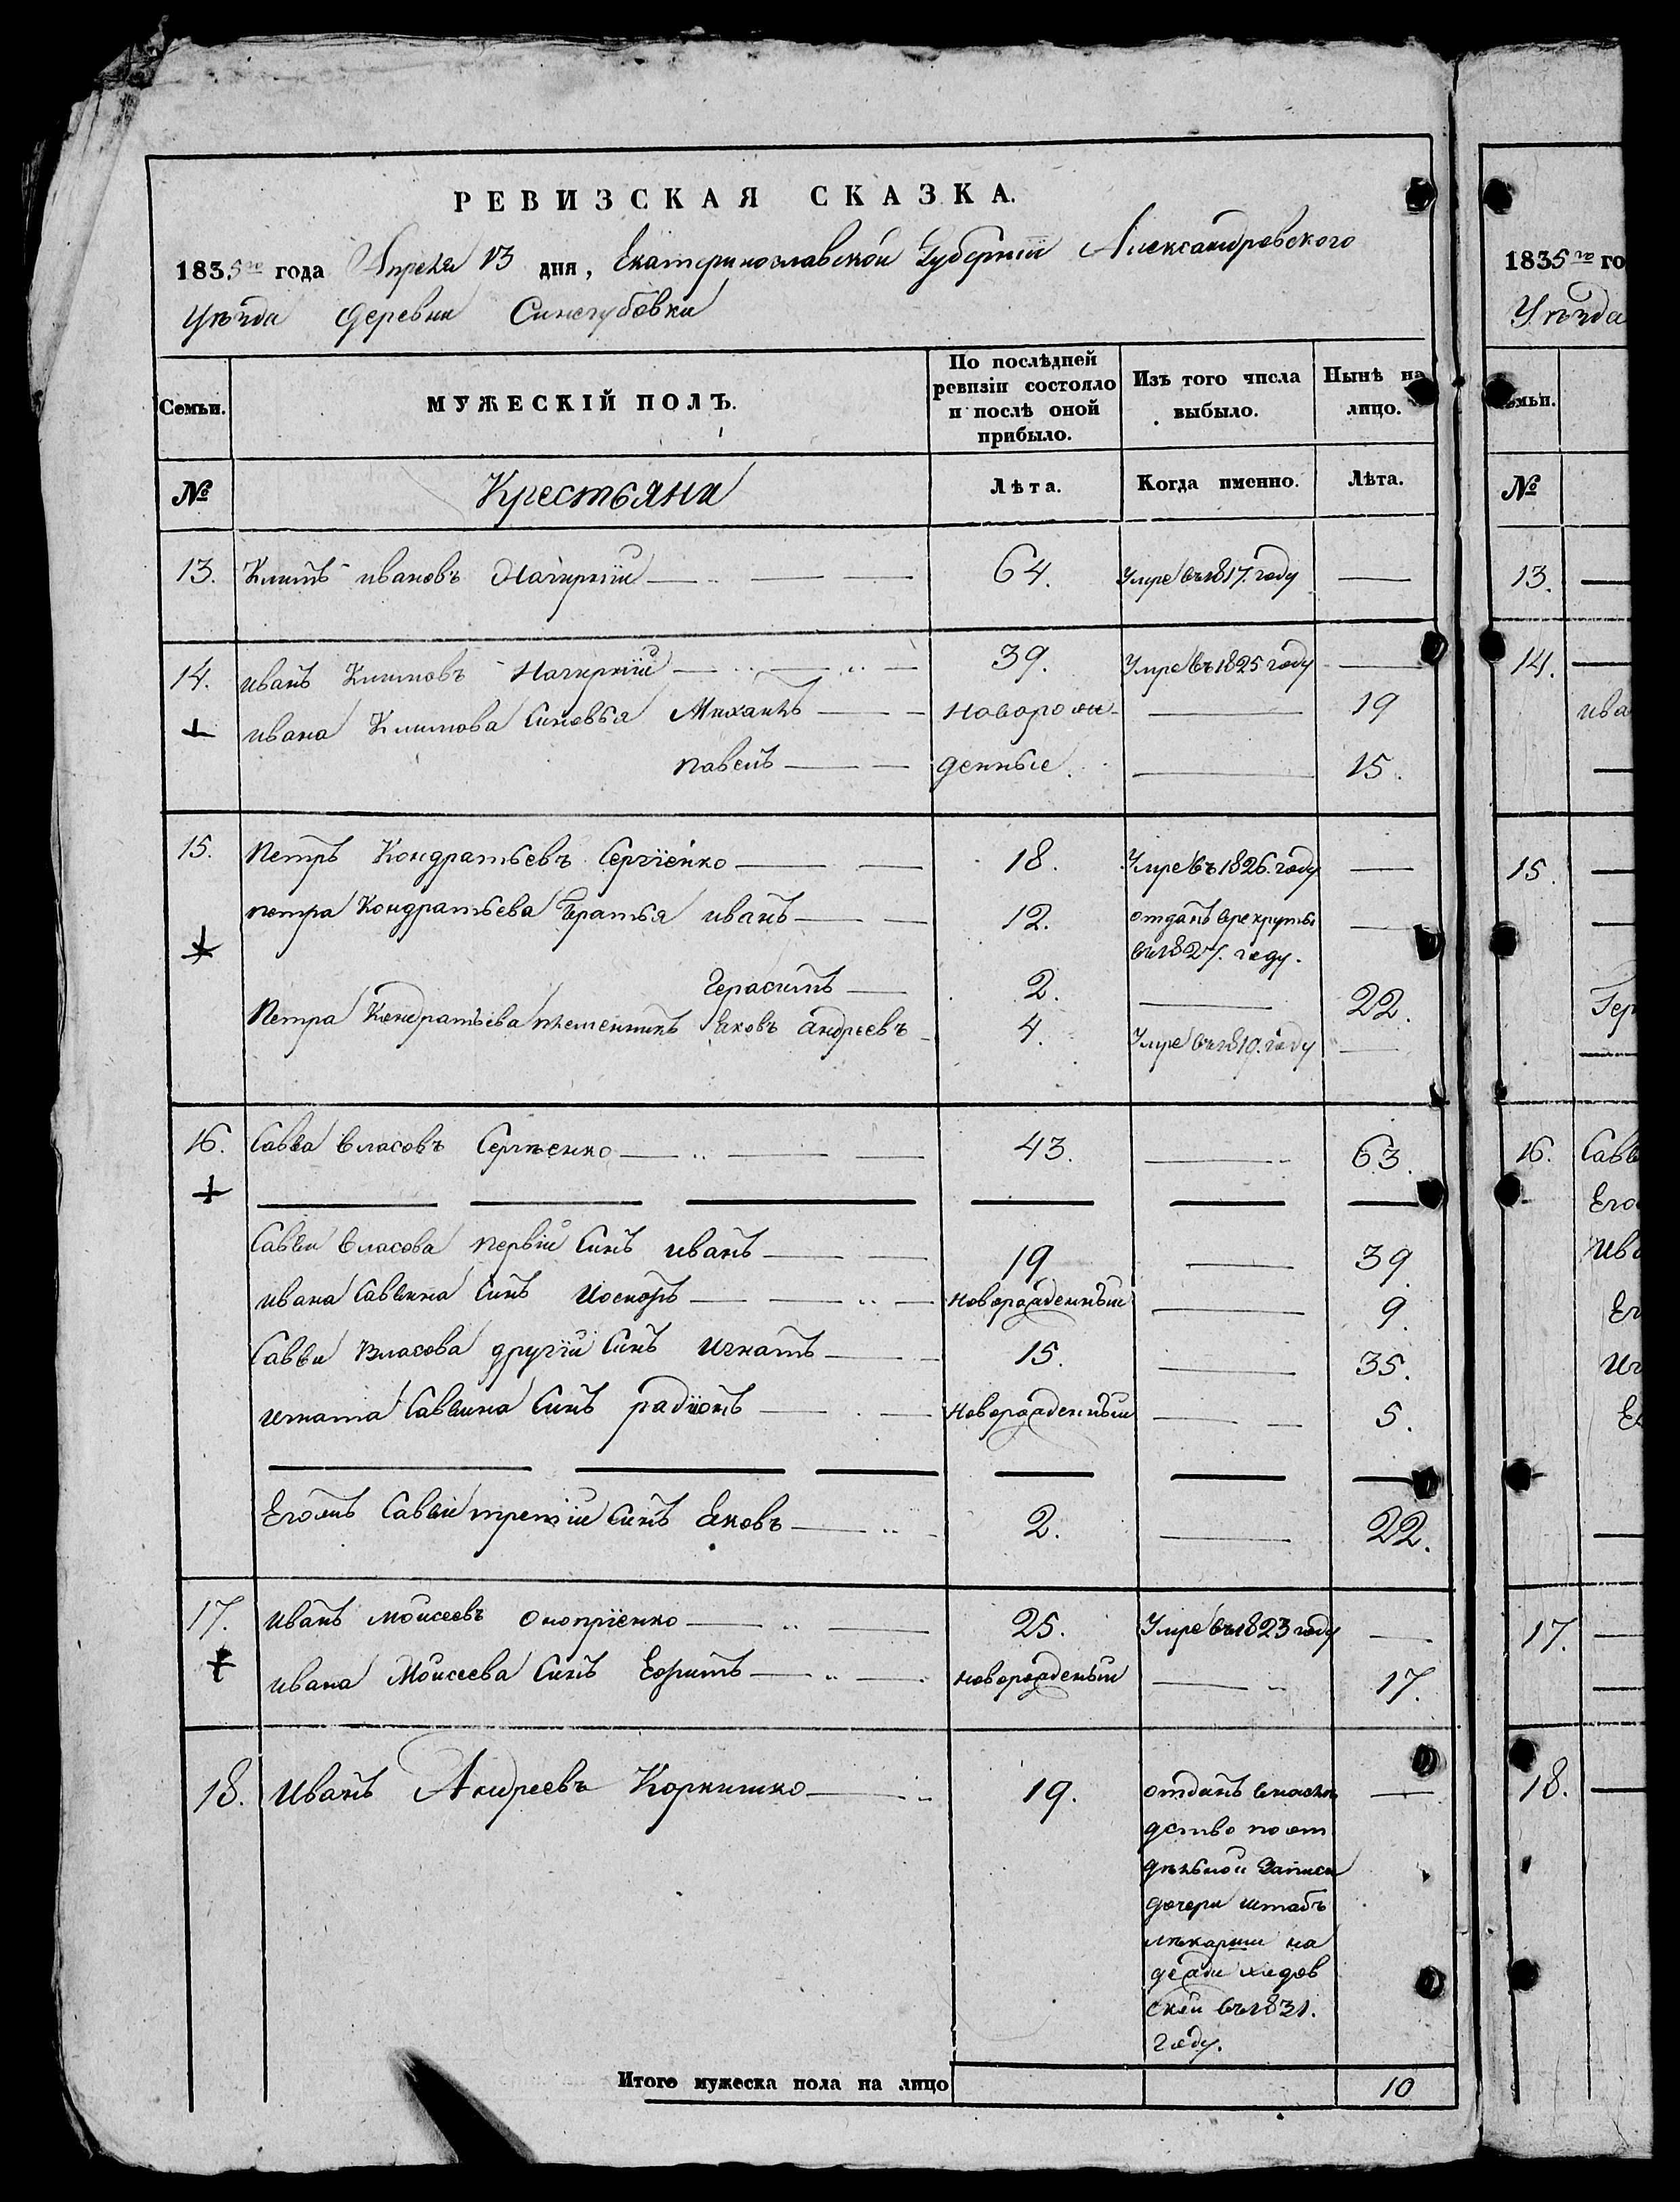 РЕВИЗСКАЯ СКАЗКА.
1835го года Апреля 13 дня, Екатеринославской Губернии Александровского
Уѣзда деревни Синегубовки
Семьи. МУЖЕСКІЙ ПОЛЪ. По послѣдней ревизіи состояло и послѣ оной прибыло. Изъ того числа выбыло. Нынѣ на лицо.
№ Крестьяни Лѣта. Когда именно. Лѣта.
13. Климъ ивановъ 64. Умре въ 1817. году —
14. иванъ Климовъ 39. Умре въ 1825 году —
ивана Климова Синовья Михаилъ — новорож- — 19
павелъ — денные. — 15.
15. Петръ Кондратьевъ Сергіенко — 18. Умре въ 1826. году —
петра Кондратьева братья иванъ — 12. отданъ врекруты —
въ 1827. году.
Герасимъ — 2. — 22.
Петра Кондратьева племенникъ Яковъ андреевъ 4. Умре въ 1819. году —
16. Савва власовъ Сергѣенко — 43. — 63.
Саввы власова первій Синъ иванъ — 19 — 39.
ивана Саввина Синъ иосифъ — новорожденный — 9.
Саввы Власова другій Синъ игнатъ — 15. — 35.
игната Саввина Синъ радіонъ — новорожденный — 5.
Егожъ Саввы третій Синъ Яковъ — 2. — 22.
17. иванъ моисеевъ оноприенко — 25. Умре въ 1823 году —
ивана Моисеева Синъ Ефимъ — новорожденый — 17.
18. иванъ Андреевъ Коркишко — 19. отданъ внаслѣ —
дство по от
дѣльной Записи
дочери штабъ
лѣкарши на
дежди
ской въ 1831.
году.
Итого мужеска пола на лицо 10
1835го го
Уѣзда
№
13.
14.
ива
15.
Гер
16. Савв
Его
ива
17.
18.